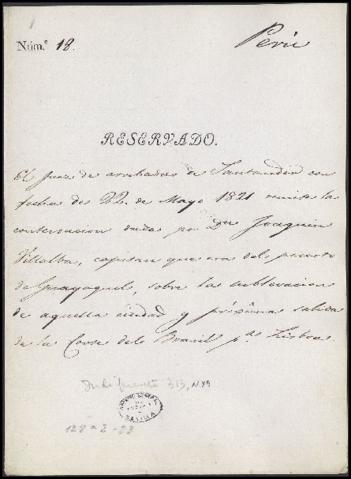 Núm.º 18.
Perú
RESERVADO.
El Juez de arribadas de Santander con
fecha de 22 de Mayo 1821 remite la
contestacion dada por Dn Joaquin
Villalba, capitan que era del puerto
de Guayaquil, sobre la sublevacion
de aquella ciudad y próxima salida
de la Corte del Brasil pª Lisboa.
Indiferente 313, N.49
SEVILLA